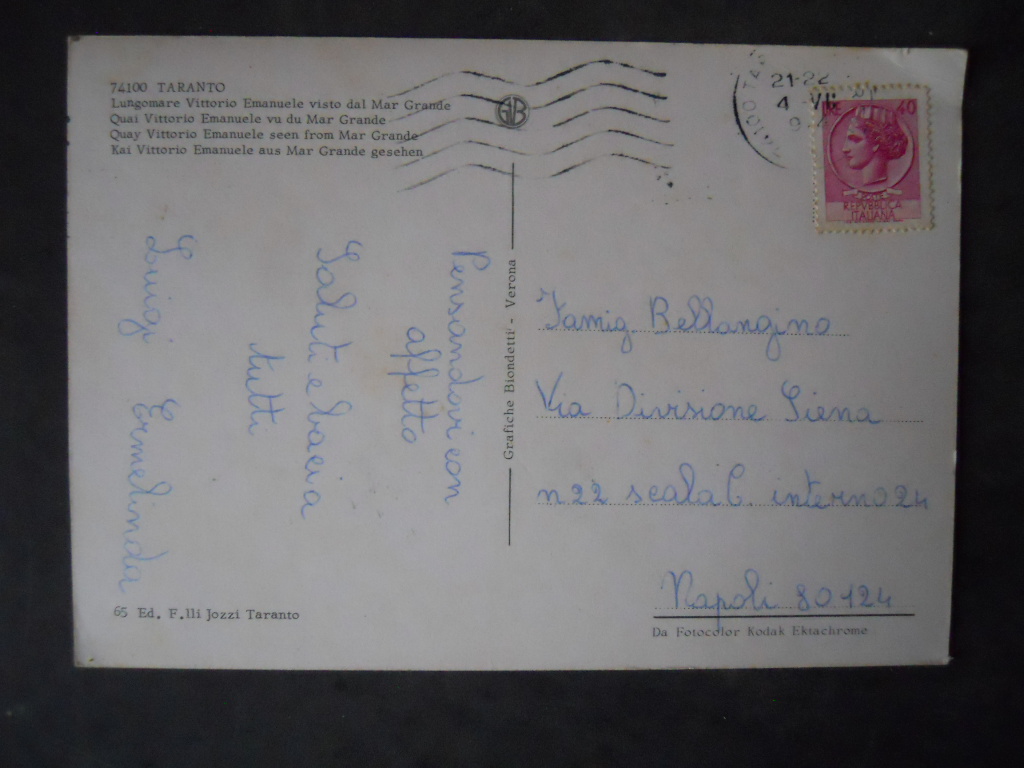 74100 TARANTO
Lungomare Vittorio Emanuele visto dal Mar Grande
Quai Vittorio Emanuele vu du Mar Grande
Quay Vittorio Emanuele seen from Mar Grande
Kai Vittorio Emanuele aus Mar Grande gesehen
GB
21-22
4 VII
40
REPVBBLICA
ITALIANA
Pensandovi con
affetto
Saluti e baci a
tutti
Luigi Ermelinda
Grafiche Biondetti - Verona
Famig. Bellangino
Via Divisione Siena
n 22 scala C. interno 24
Napoli 80124
65 Ed. F.lli Jozzi Taranto
Da Fotocolor Kodak Ektachrome